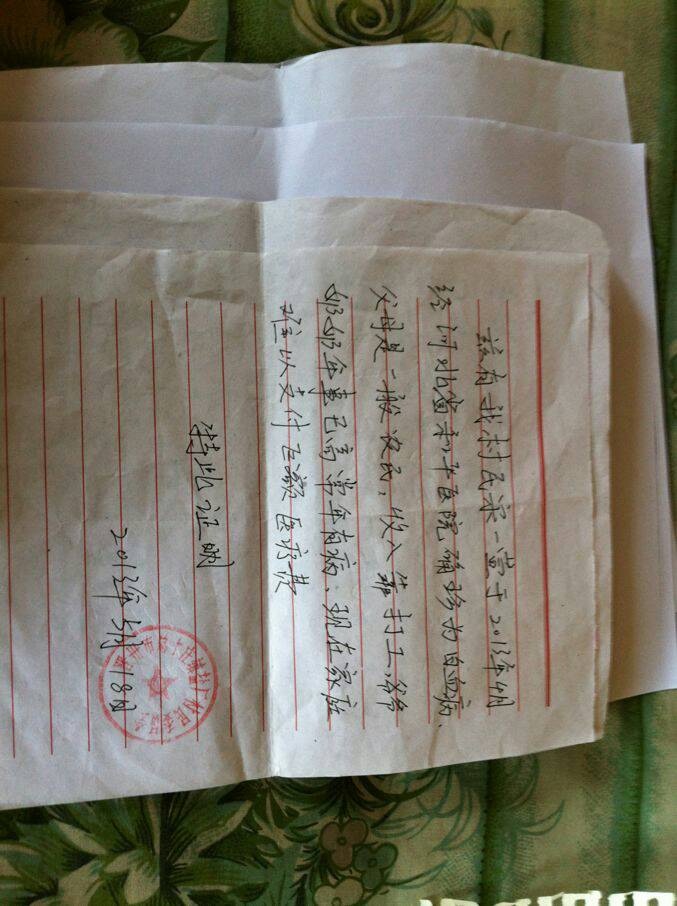 兹有我村民宗一富于2013年4月
经河北省和平医院确诊为白血病、
父母是一般农民，收入靠打工，爷爷
奶奶年事已高常年有病、现在家庭
难以支付巨额医疗费
特此证明
2013年5月18日